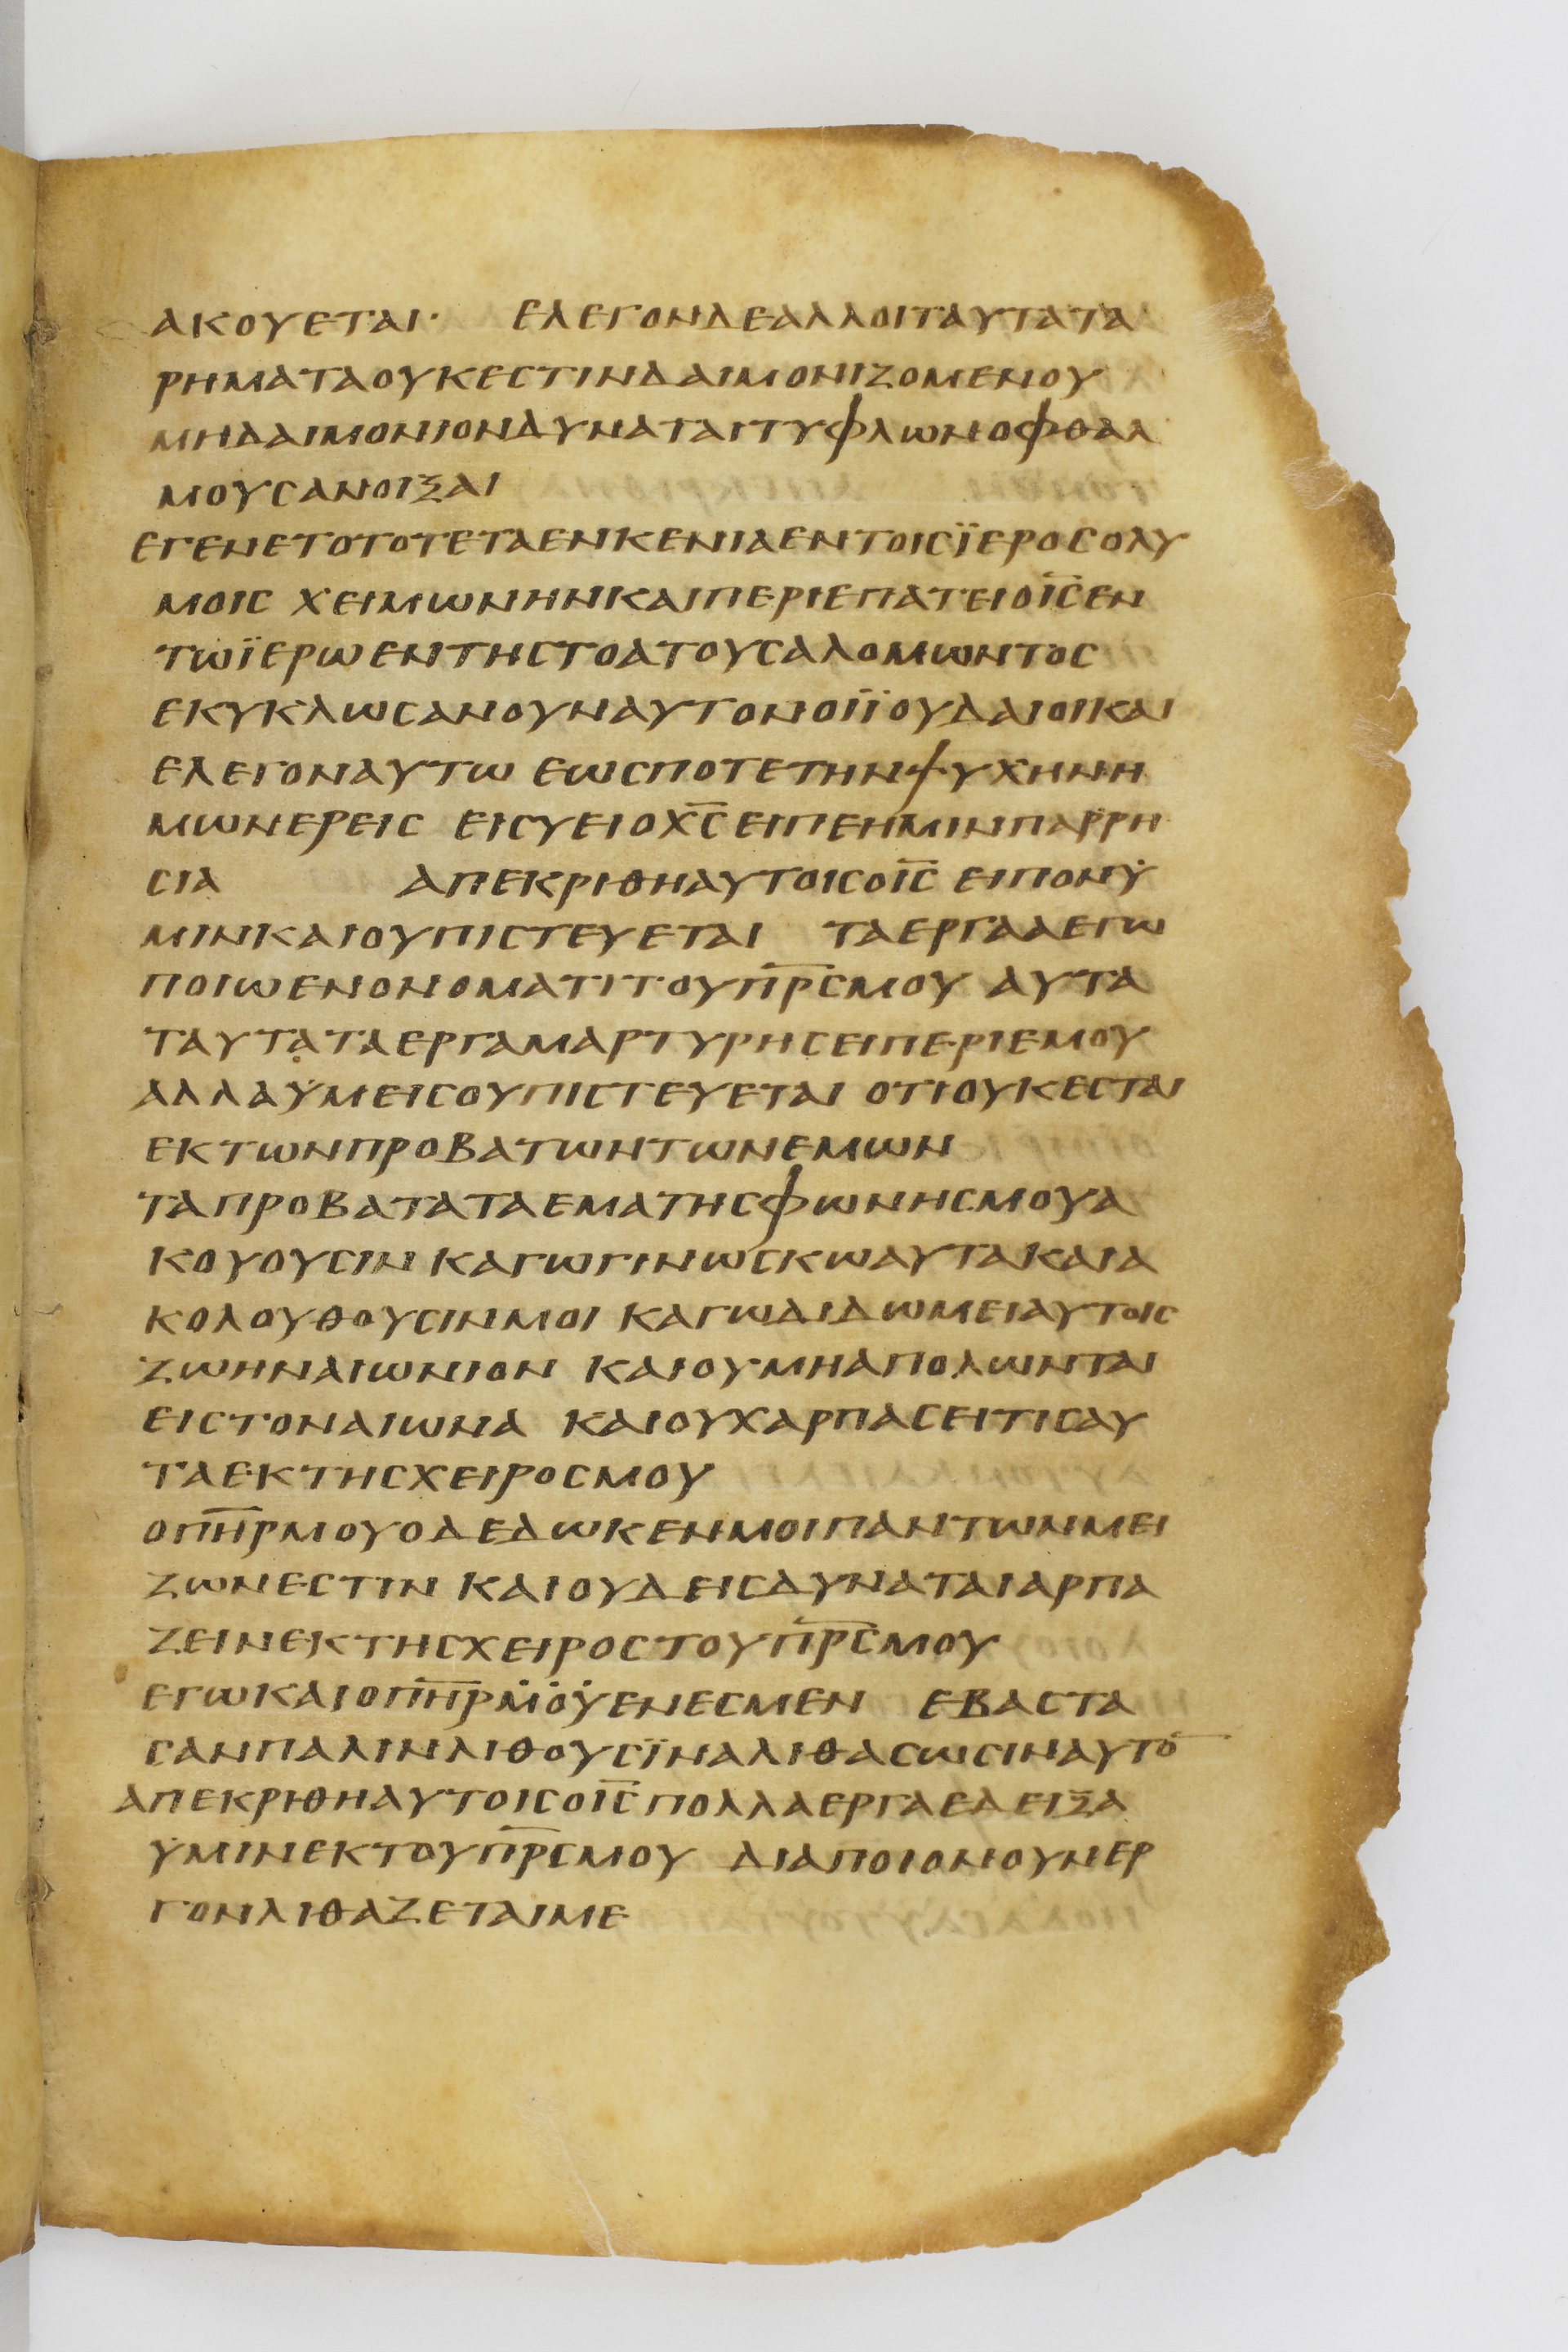 ΑΚΟΥΕΤΑΙ· ΕΛΕΓΟΝΔΕΑΛΛΟΙΤΑΥΤΑΤΑ
ΡΗΜΑΤΑΟΥΚΕϹΤΙΝΔΑΙΜΟΝΙΖΟΜΕΝΟΥ
ΜΗΔΑΙΜΟΝΙΟΝΔΥΝΑΤΑΙΤΥΦΛΩΝΟΦΘΑΛ
ΜΟΥϹΑΝΟΙΞΑΙ
ΕΓΕΝΕΤΟΤΟΤΕΤΑΕΝΚΕΝΙΑΕΝΤΟΙϹΪΕΡΟϹΟΛΥ
ΜΟΙϹ ΧΕΙΜΩΝΗΝΚΑΙΠΕΡΙΕΠΑΤΕΙΟΙ̅Ϲ̅ΕΝ
ΤΩΪΕΡΩΕΝΤΗϹΤΟΑΤΟΥϹΑΛΟΜΩΝΤΟϹ
ΕΚΥΚΛΩϹΑΝΟΥΝΑΥΤΟΝΟΙΪΟΥΔΑΙΟΙΚΑΙ
ΕΛΕΓΟΝΑΥΤΩ ΕΩϹΠΟΤΕΤΗΝΨΥΧΗΝΗ
ΜΩΝΕΡΕΙϹ ΕΙϹΥΕΙΟΧ̅Ϲ̅ΕΙΠΕΗΜΙΝΠΑΡΡΗ
ϹΙΑ ΑΠΕΚΡΙΘΗΑΥΤΟΙϹΟΙ̅Ϲ̅ ΕΙΠΟΝΫ
ΜΙΝΚΑΙΟΥΠΙϹΤΕΥΕΤΑΙ ΤΑΕΡΓΑΑΕΓΩ
ΠΟΙΩΕΝΟΝΟΜΑΤΙΤΟΥΠ̅Ρ̅Ϲ̅ΜΟΥ ΑΥΤΑ
ΤΑΥΤΑΤΑΕΡΓΑΜΑΡΤΥΡΗϹΕΙΠΕΡΙΕΜΟΥ
ΑΛΛΑΫΜΕΙϹΟΥΠΙϹΤΕΥΕΤΑΙ ΟΤΙΟΥΚΕϹΤΑΙ
ΕΚΤΩΝΠΡΟΒΑΤΩΝΤΩΝΕΜΩΝ
ΤΑΠΡΟΒΑΤΑΤΑΕΜΑΤΗϹΦΩΝΗϹΜΟΥΑ
ΚΟΥΟΥϹΙΝ ΚΑΓΩΓΙΝΩϹΚΩΑΥΤΑΚΑΙΑ
ΚΟΛΟΥΘΟΥϹΙΝΜΟΙ ΚΑΓΩΔΙΔΩΜΕΙΑΥΤΟΙϹ
ΖΩΗΝΑΙΩΝΙΟΝ ΚΑΙΟΥΜΗΑΠΟΛΩΝΤΑΙ
ΕΙϹΤΟΝΑΙΩΝΑ ΚΑΙΟΥΧΑΡΠΑϹΕΙΤΙϹΑΥ
ΤΑΕΚΤΗϹΧΕΙΡΟϹΜΟΥ
ΟΠ̅Η̅Ρ̅ΜΟΥΟΔΕΔΩΚΕΝΜΟΙΠΑΝΤΩΝΜΕΙ
ΖΩΝΕϹΤΙΝ ΚΑΙΟΥΔΕΙϹΔΥΝΑΤΑΙΑΡΠΑ
ΖΕΙΝΕΚΤΗϹΧΕΙΡΟϹΤΟΥΠ̅Ρ̅Ϲ̅ΜΟΥ
ΕΓΩΚΑΙΟΠ̅Η̅Ρ̅Μ̇Ο̇Υ̇ΕΝΕϹΜΕΝ ΕΒΑϹΤΑ
ϹΑΝΠΑΛΙΝΛΙΘΟΥϹΪΝΑΛΙΘΑϹΩϹΙΝΑΥΤΟ̅
ΑΠΕΚΡΙΘΗΑΥΤΟΙϹΟΙ̅Ϲ̅ΠΟΛΛΑΕΡΓΑΕΔΕΙΞΑ
ΫΜΙΝΕΚΤΟΥΠ̅Ρ̅Ϲ̅ΜΟΥ ΔΙΑΠΟΙΟΝΟΥΝΕΡ
ΓΟΝΛΙΘΑΖΕΤΑΙΜΕ